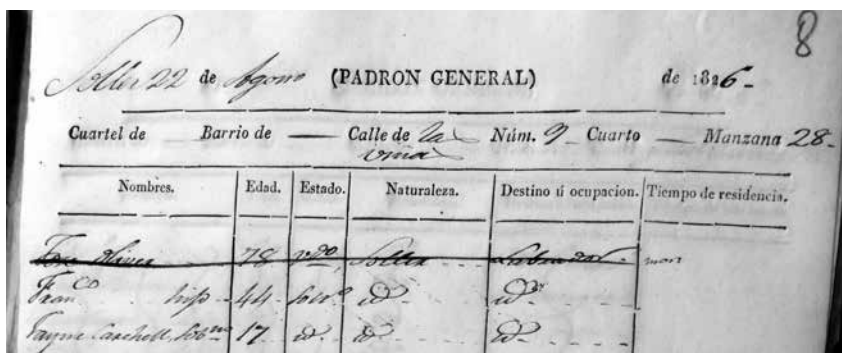 8
Soller 22 de Agosto (PADRON GENERAL) de 1826-
Cuartel de Barrio de — Calle de la Núm. 9 Cuarto — Manzana 28-
viña
Nombres. Edad. Estado. Naturaleza. Destino ú ocupacion. Tiempo de residencia.
Jose Oliver 78 vdo. Soller Labrador.
Franco. hijo 44 solto. id id
Jayme Caschell, Sobno 17 id id id